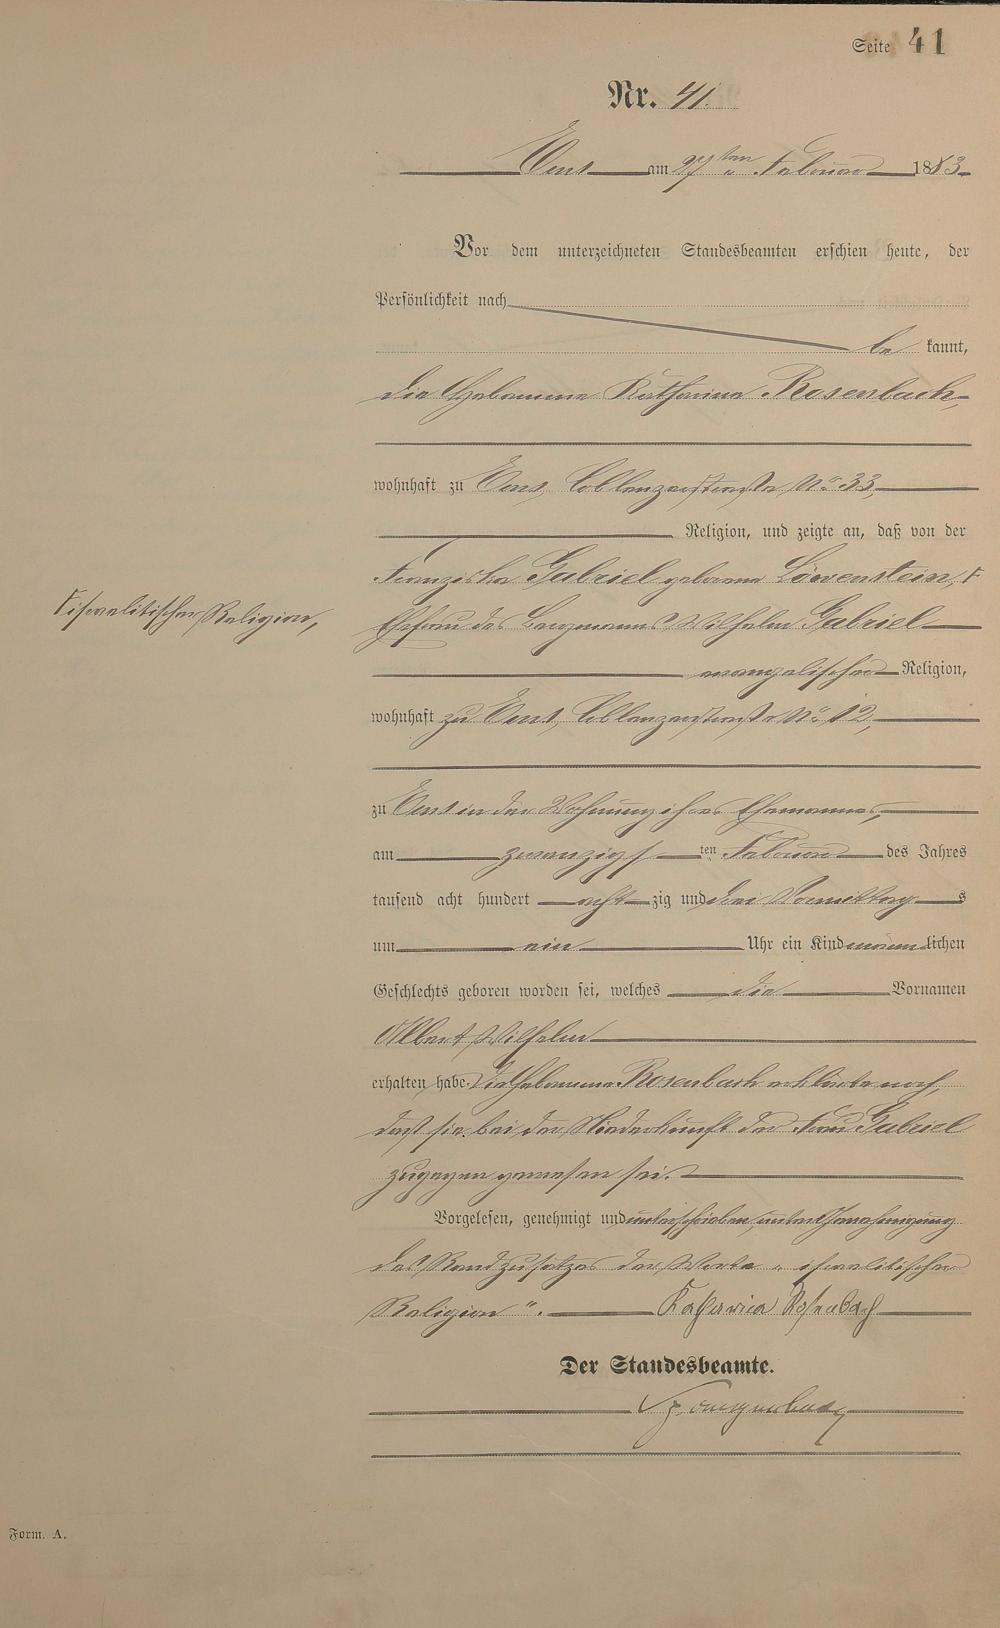 Seite 41
Nr. 41.
Ems am 27ten Februar 1883.
Vor dem unterzeichneten Standesbeamten erschien heute, der
Persönlichkeit nach
be kannt,
die Hebamme Katharina Rosenbach,
wohnhaft zu Ems, Coblenzerstraße No 33,
Religion, und zeigte an, daß von der
Franziska Gabriel geborene Löwenstein, F
F israelitischer Religion,
Ehefrau des Bergmanns Wilhelm Gabriel
evangelischer Religion,
wohnhaft zu Ems, Coblenzerstraße No 12,
zu Ems in der Wohnung ihres Ehemannes,
am zwanzigsten Februar des Jahres
tausend acht hundert acht zig und drei Vormittags
um ein Uhr ein Kind männlichen
Geschlechts geboren worden sei, welches die Vornamen
Albert Wilhelm
erhalten habe. Die Hebamme Rosenbach erklärte noch,
daß sie bei der Niederkunft der Frau Gabriel
zugegen gewesen sei.
Vorgelesen, genehmigt und unterschrieben, unter Genehmigung
des Randzusatzes der Worte „israelitischer
Religion“. Katharina Rosenbach
Der Standesbeamte.
Form. A.